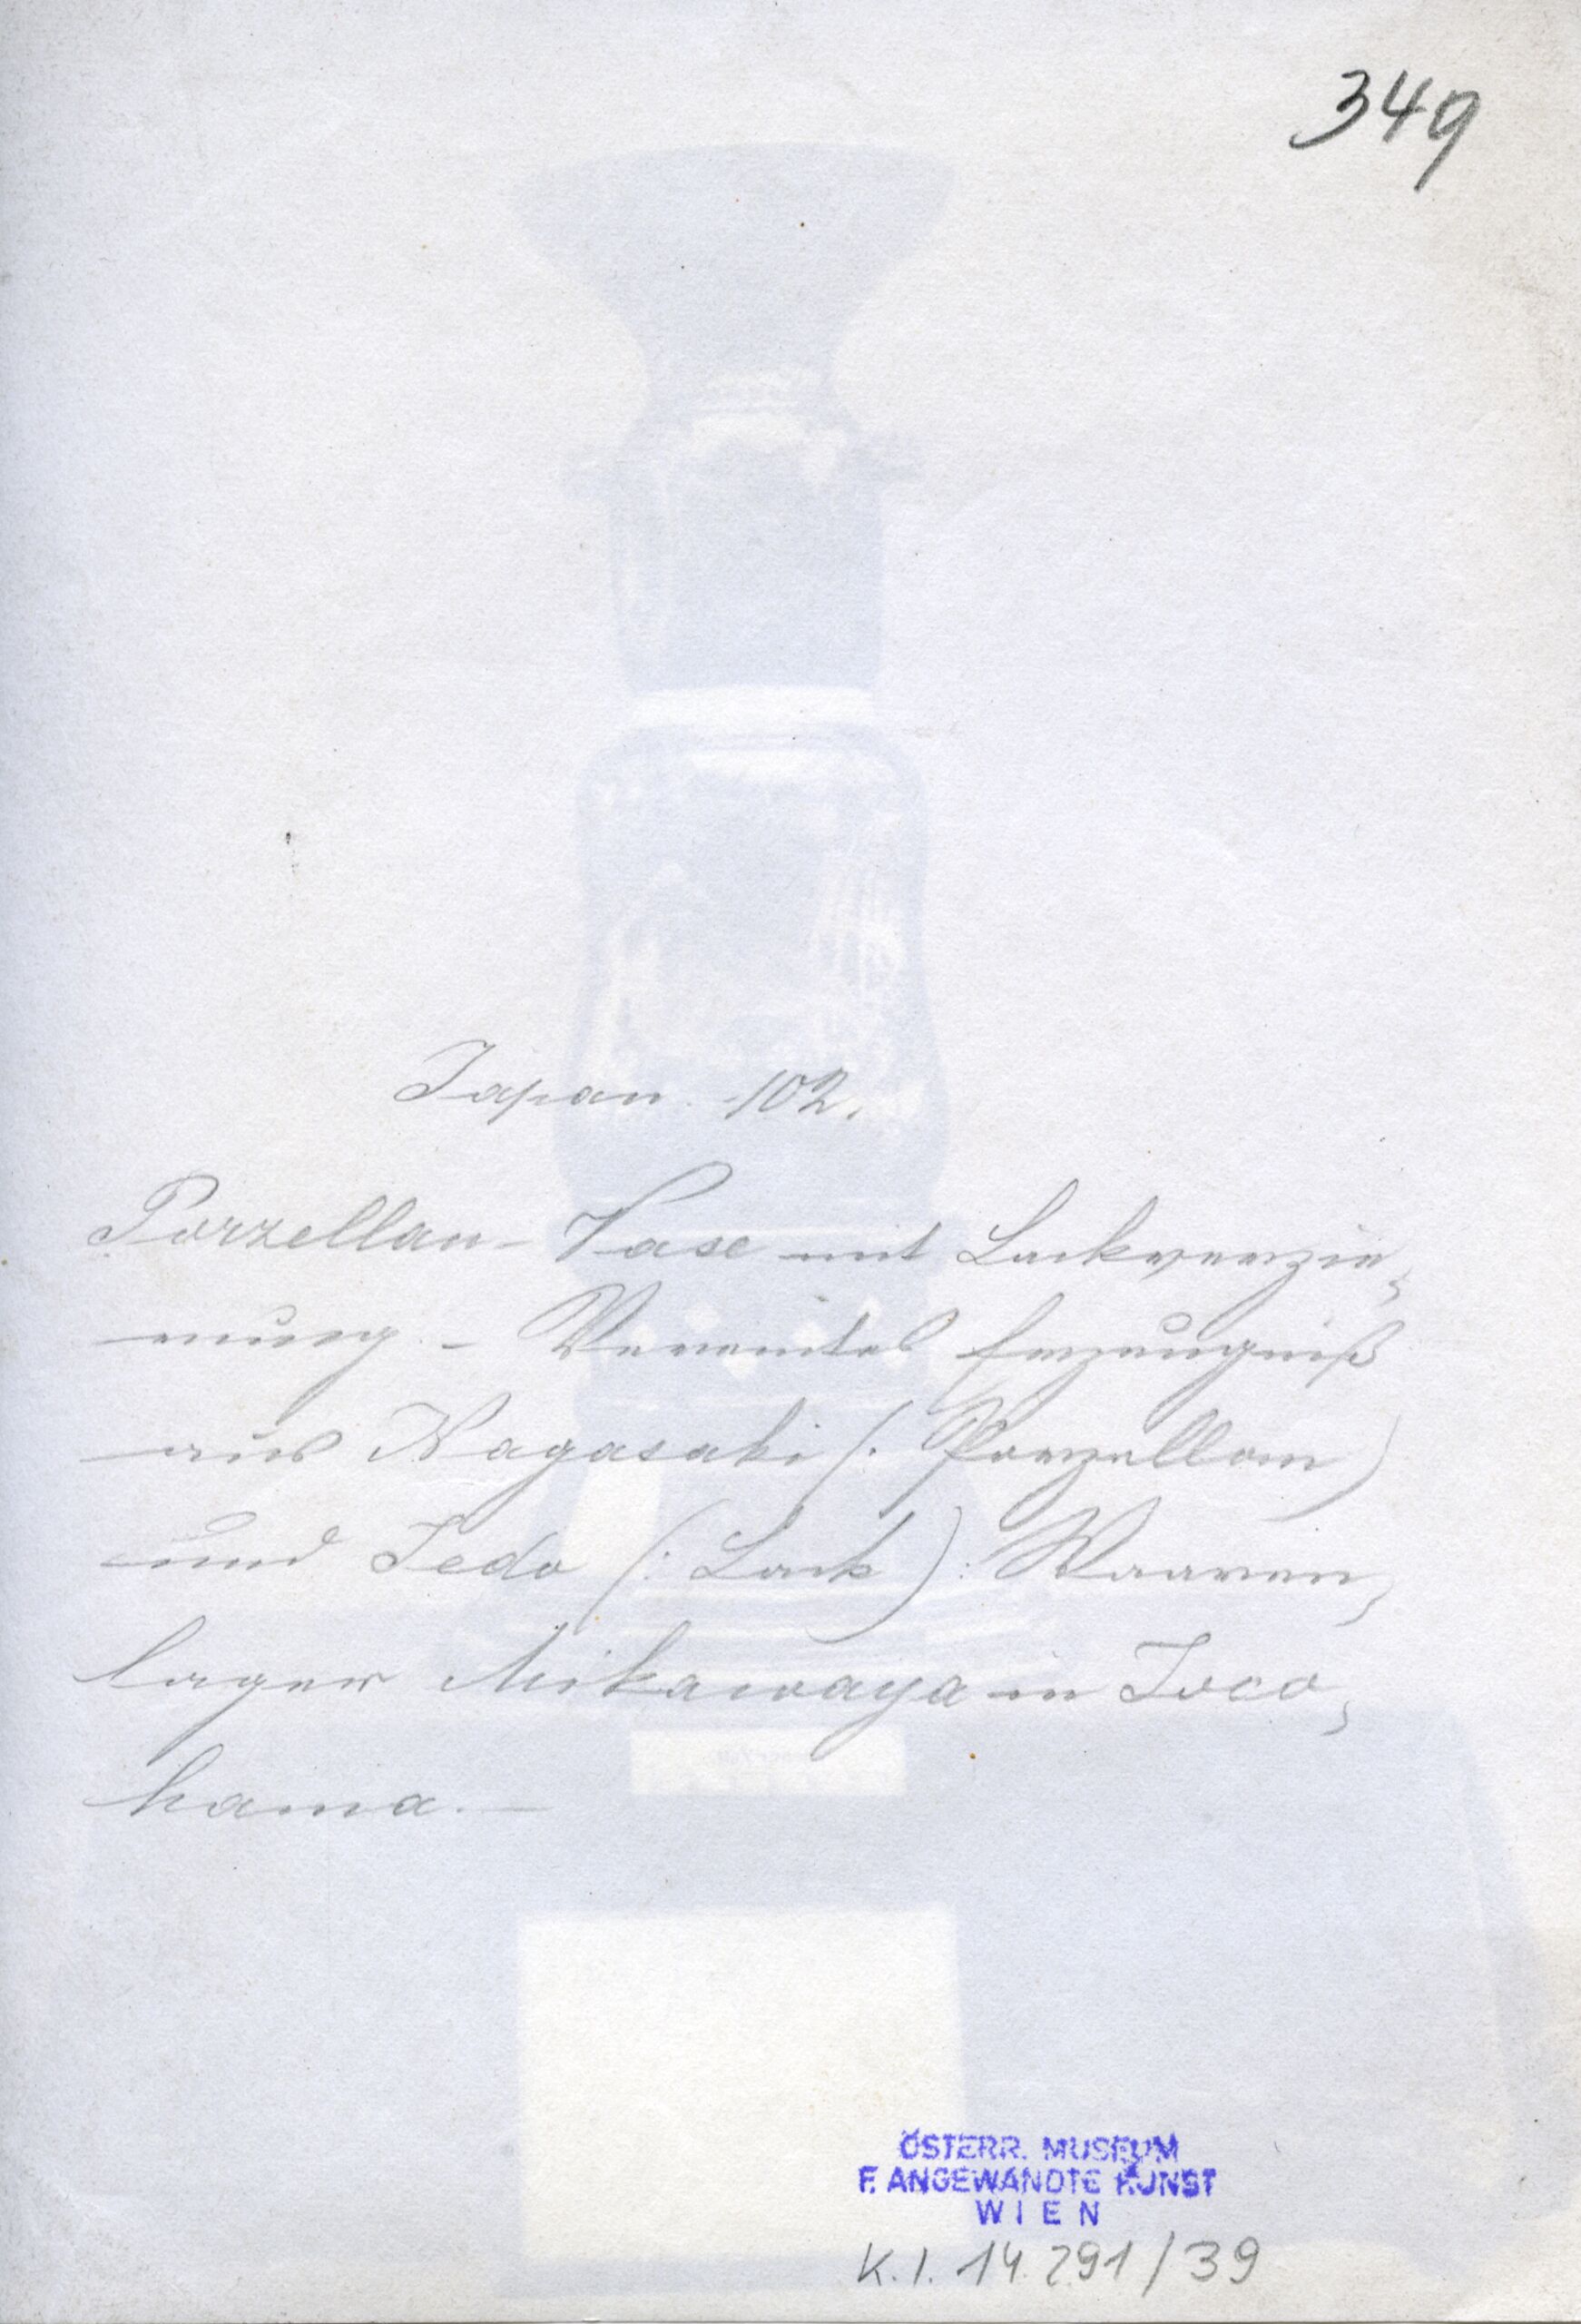 349
Japan. 102.
Porzellan-Vase mit Lackverzie,
rung. - Erzeugniß
aus Nagasaki (: Porzellan)
und Jedo (: Lack): Waaren,
lager Mikawaya in Joco,
hama. —
ÖSTERR. MUSEUM
F. ANGEWANDTE KUNST
WIEN
K.I. 14.291/39